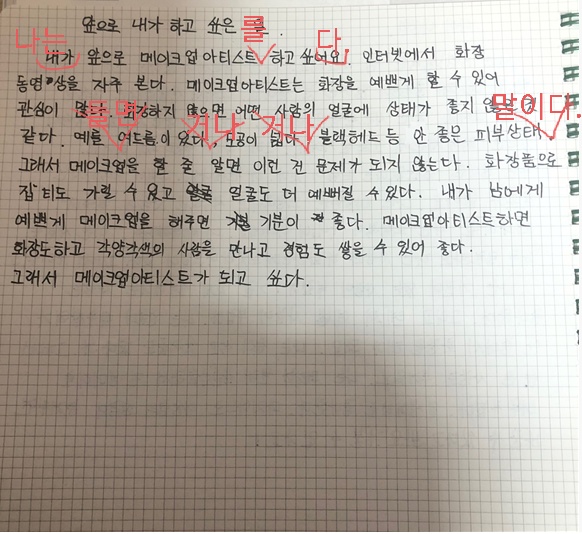 앞으로 내가 하고 싶은
나는 를 다.
내가 앞으로 메이크업 아티스트 하고 싶어요. 인터넷에서 화장
동영상을 자주 본다. 메이크업아티스트는 화장을 예쁘게 할 수 있어
관심이 화장하지 않으면 어떤 사람의 얼굴에 상태가 좋지
들면 거나 거나 말이다.
같다. 예를 여드름이 있다, 모공이 넓다 블랙헤드 등 안 좋은 피부상태.
그래서 메이크업을 할 줄 알면 이런 건 문제가 되지 않는다. 화장품으로
잡티도 가릴 수 있고 얼굴도 더 예뻐질 수 있다. 내가 남에게
예쁘게 메이크업을 해주면 기분이 좋다. 메이크업아티스트하면
화장도하고 각양각색의 사람을 만나고 경험도 쌓을 수 있어 좋다.
그래서 메이크업아티스트가 되고 싶다.